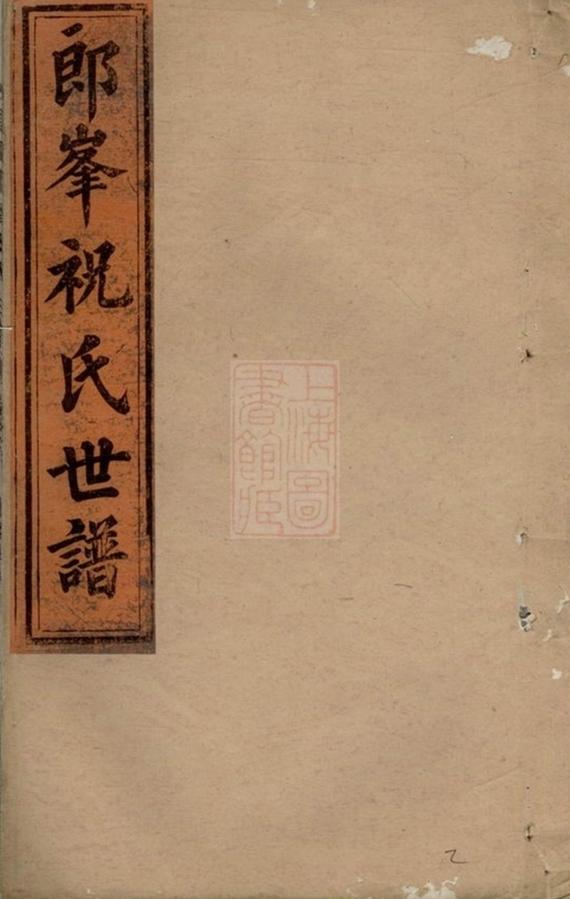 郎峯祝氏世譜
上海圖
書館藏
乙